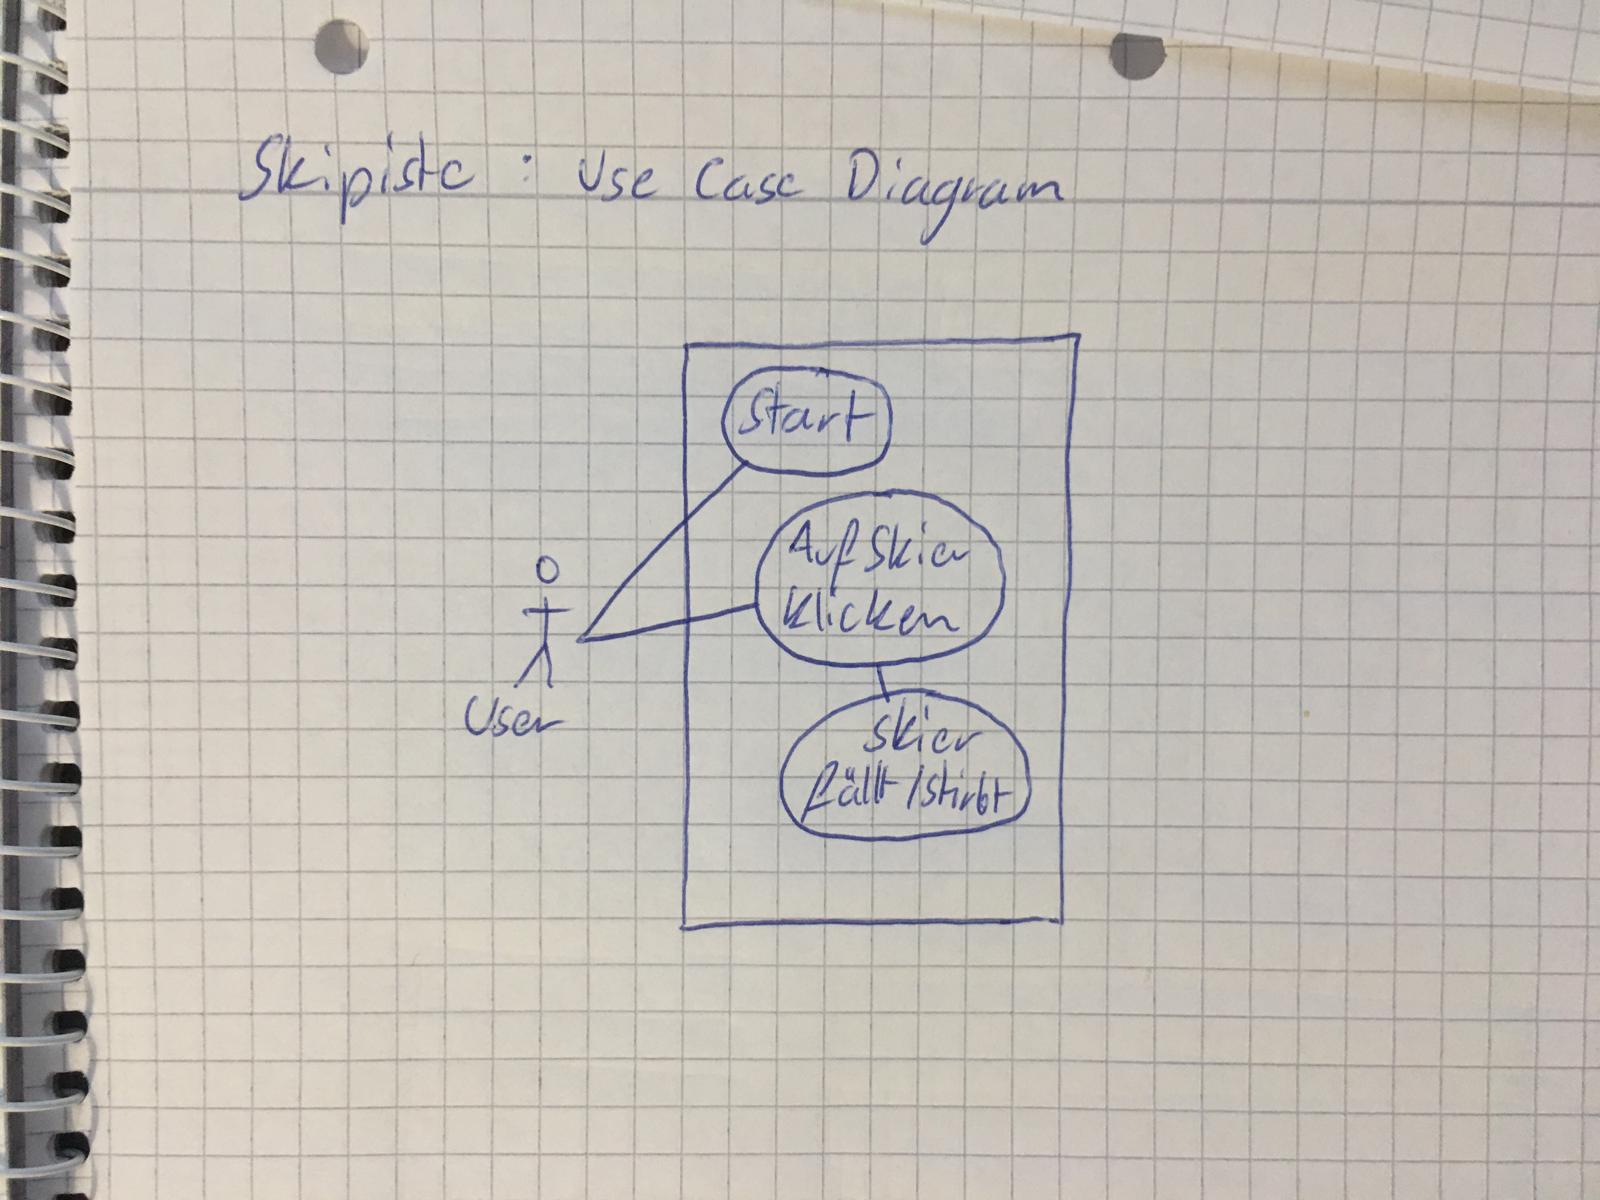 Skipiste : Use Case Diagram
Start
Auf Skier
klicken
User
Skier
fällt/stirbt